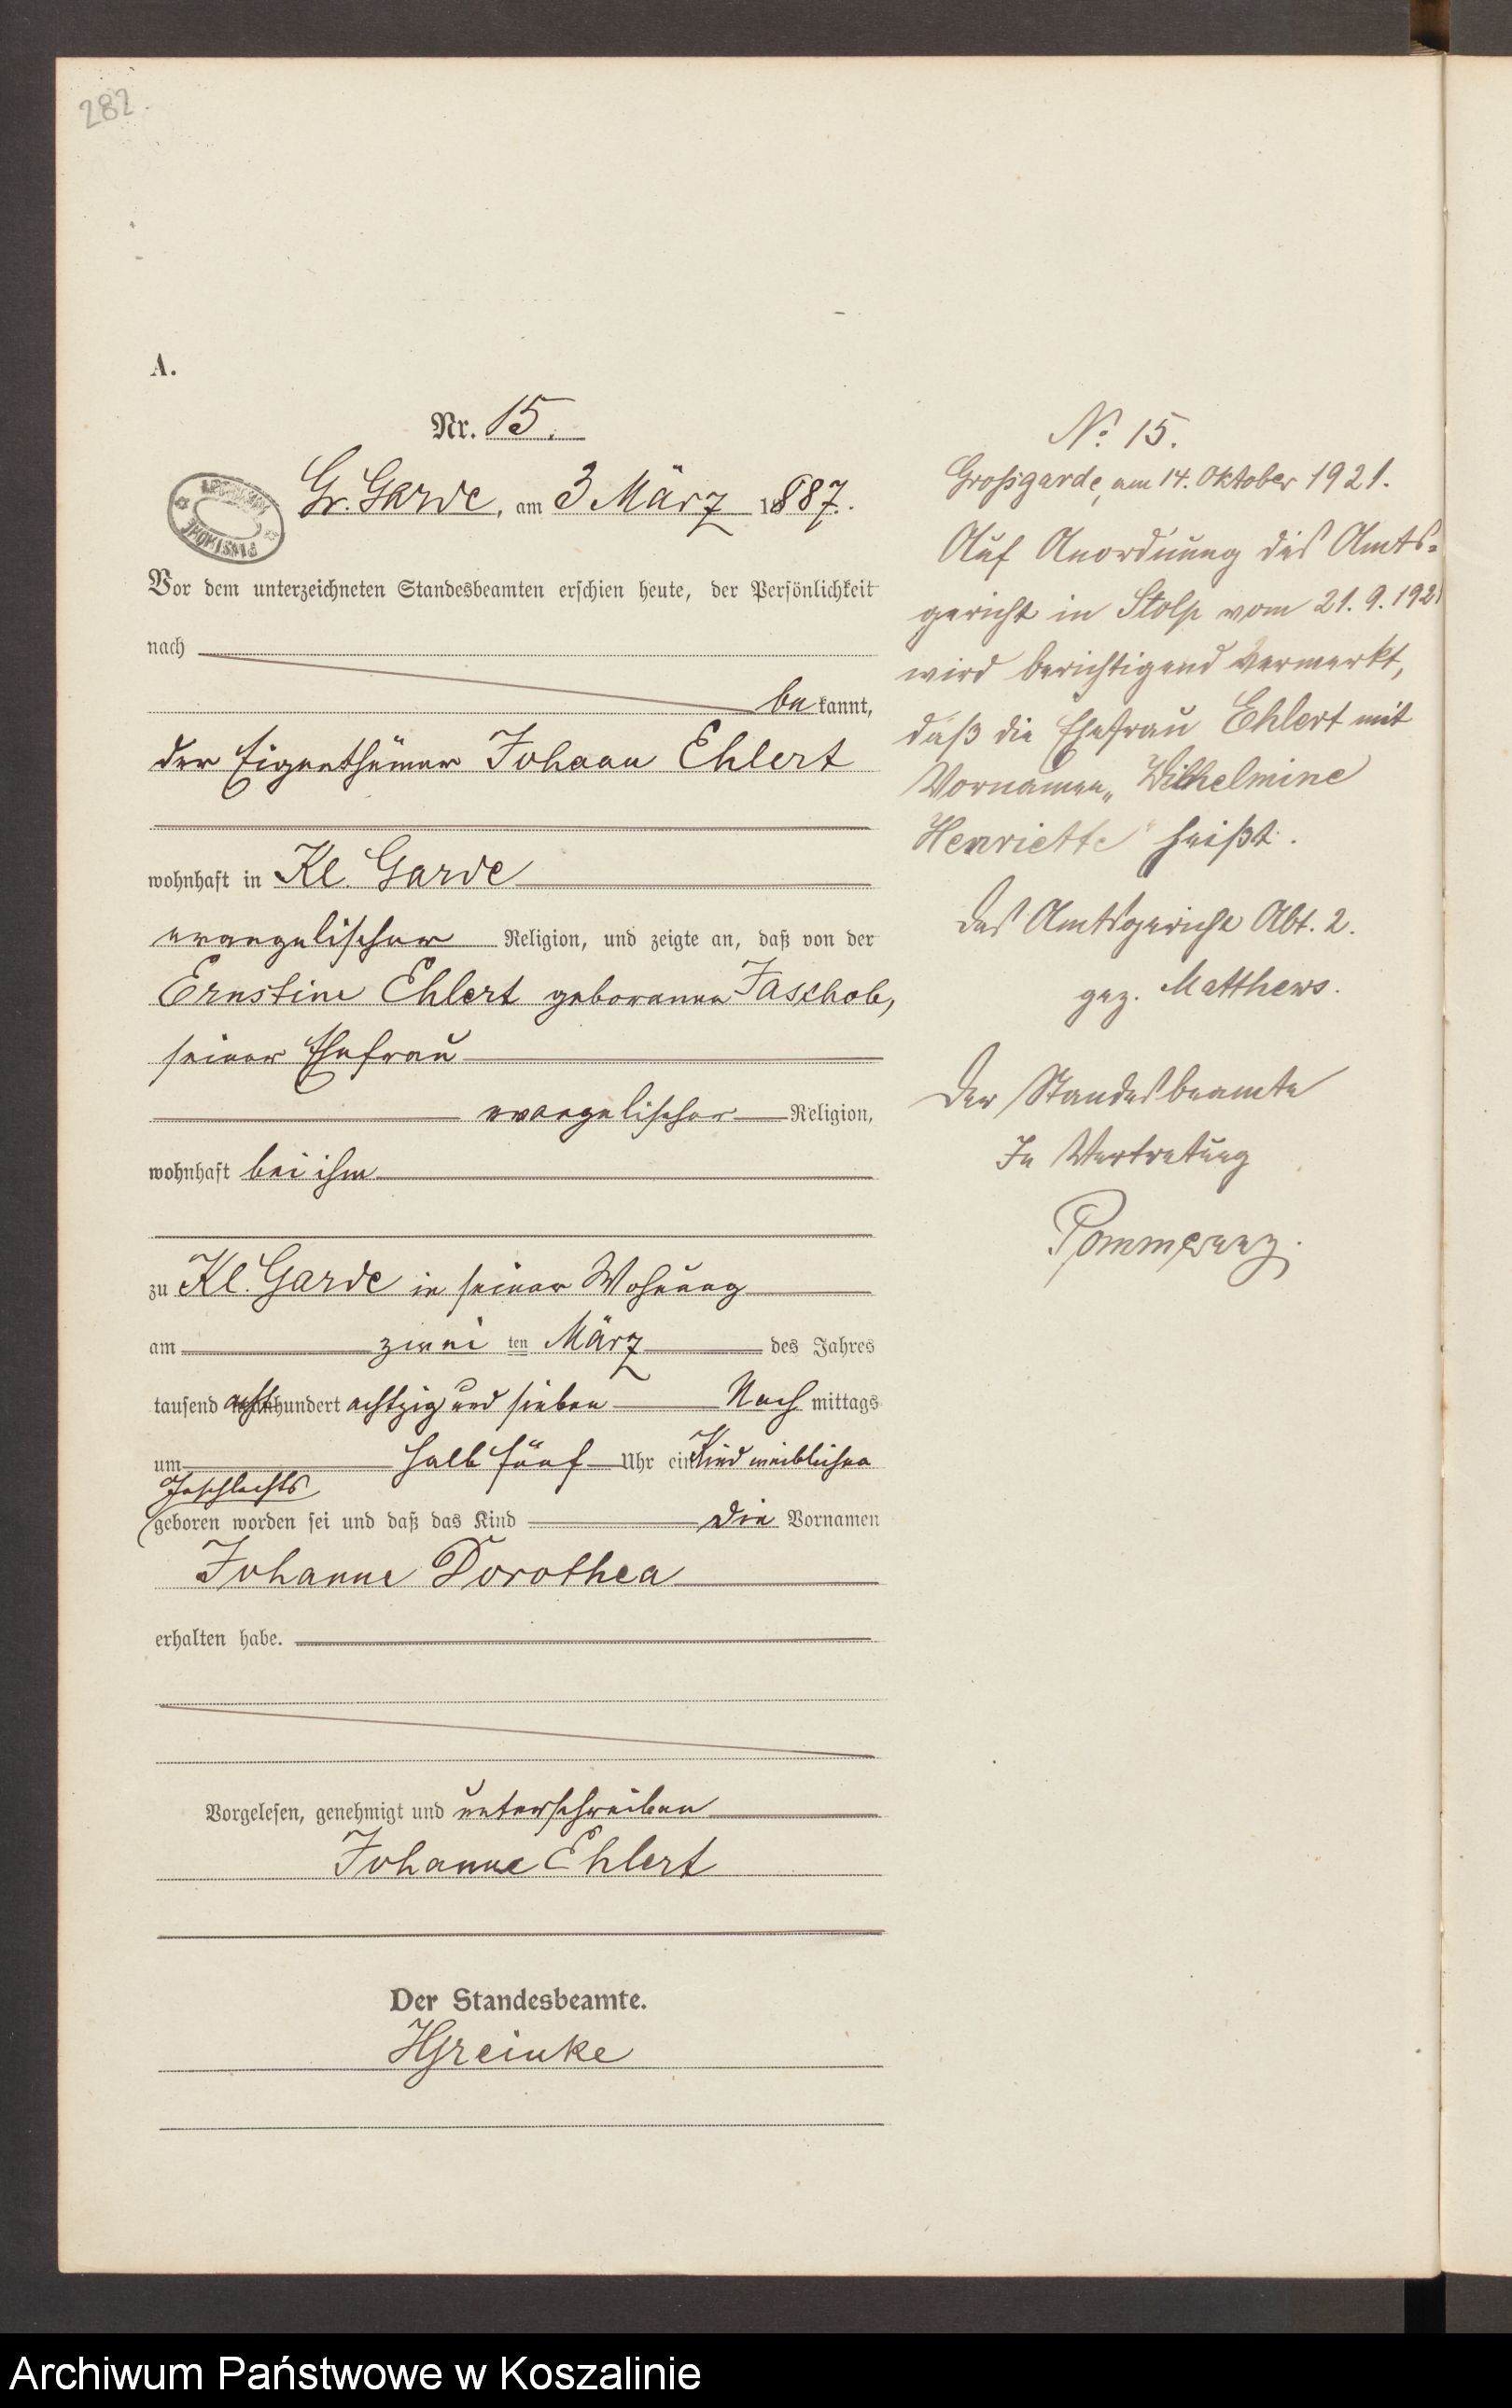 282.
A.
Nr. 15.
Gr. Garde, am 3 März 1887.
Vor dem unterzeichneten Standesbeamten erschien heute, der Persönlichkeit
nach
be kannt,
der Eigenthümer Johann Ehlert
wohnhaft in Kl. Garde
evangelischer Religion, und zeigte an, daß von der
Ernstine Ehlert geborenen Jaschob,
seiner Ehefrau
evangelischer Religion,
wohnhaft bei ihm
zu Kl. Garde in seiner Wohnung
am zwei ten März des Jahres
tausend acht hundert achtzig und sieben Nach mittags
um halb fünf Uhr ein Kind weiblichen
Geschlechts
geboren worden sei und daß das Kind die Vornamen
Johanne Dorothea
erhalten habe.
Vorgelesen, genehmigt und unterschrieben
Johanne Ehlert
Der Standesbeamte.
HGreinke
No 15.
Großgarde, am 14. Oktober 1921.
Auf Anordnung des Amts-
gericht in Stolp vom 21.9.1921
wird berichtigend vermerkt,
daß die Ehefrau Ehlert mit
Vornamen „Wilhelmine
Henriette" heißt.
Das Amtsgericht Abt. 2.
gez. Matthews.
Der Standesbeamte
In Vertretung
Pommerenz.
Archiwum Państwowe w Koszalinie